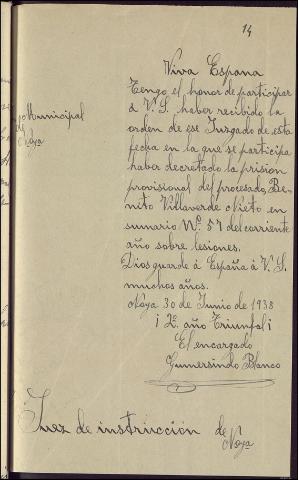 14
Viva España
Tengo el honor de participar
á V. S. haber recibido la
orden de ese Juzgado de esta
fecha en la que se participa
haber decretado la prision
provisional del procesado, Be-
nito Villaverde Nieto en
sumario Nº. 57 del corriente
año sobre lesiones.
Dios guarde á España á V. S.
muchos años.
Noya 30 de Junio de 1938
¡ 2º. año Triunfal ¡
El encargado
Gumersindo Blanco
Municipal
de
Noya
Juez de instrucción de
Noya